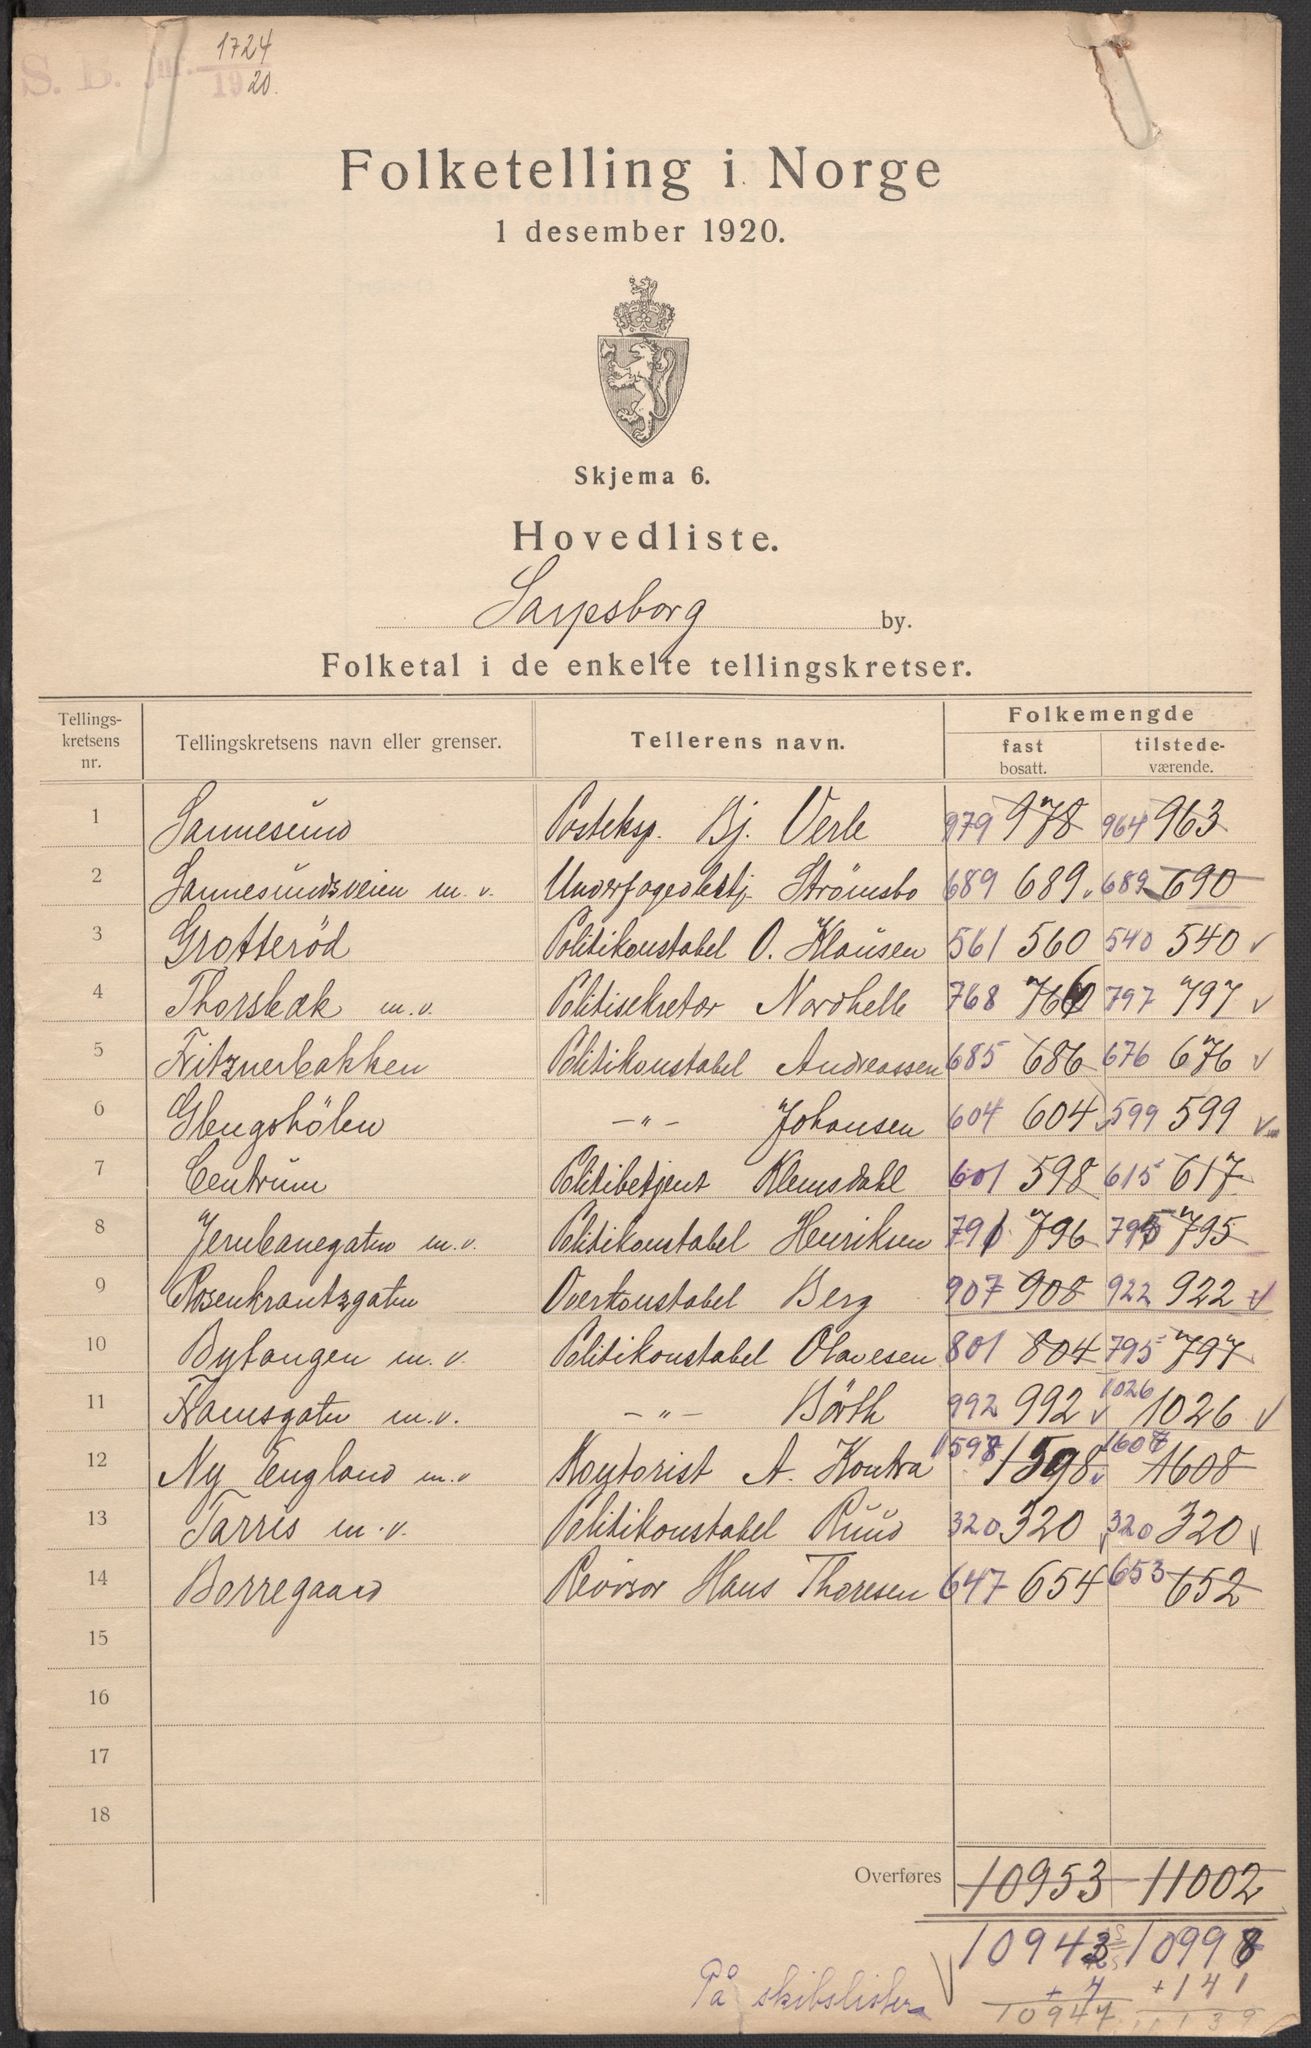 S. E. Jnr. 1724
1920.
Folketelling i Norge
1 desember 1920.
Skjema 6.
Hovedliste.
Sarpsborg by.
Folketal i de enkelte tellingskretser.
Tellings-kretsens nr. Tellingskretsens navn eller grenser. Tellerens navn. Folkemengde
fast bosatt. tilstede-værende.
1 Sannesund Posteksp. Bj. Verle 979 978 964 963
2 Sannesundsveien m. v. Underfogedbetj. Strömsbo 689 689 689 690
3 Grotteröd Politikonstabel O. Klausen 561 560 540 540
4 Thorsbæk m.v. Politisekretær Nordhelle 768 766 797 797
5 Fritznerbakken Politikonstabel Andreassen 685 686 676 676
6 Glengshölen -"- Johansen 604 604 599 599
7 Centrum Politibetjent Klemsdahl 601 598 615 617
8 Jernbanegaten m.v. Politikonstabel Henriksen 791 796 795 795
9 Rosenkrantzgaten Overkonstabel Berg 907 908 922 922
10 Bytangen m.v. Politikonstabel Olavesen 801 804 795 797
11 Framsgaten m.v. -"- Börth 992 992 1026 1026
12 Ny England m.v Kontorist A. Kontra 1598 1598 1607 1608
13 Tarris m.v. Politikonstabel Ruud 320 320 320 320
14 Borregaard Revisor Hans Thoresen 647 654 653 652
15
16
17
18
Overføres 10953 11002
10943 10998
På skibslister + 4 + 141
10947 11139